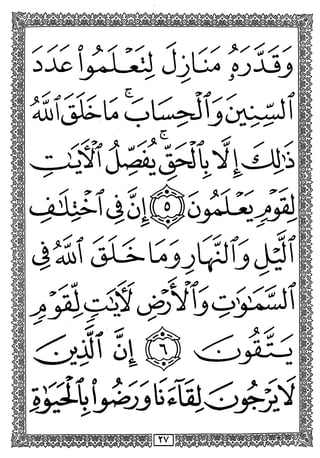 وَقَدَّرَهُۥ مَنَازِلَ لِتَعْلَمُوا۟ عَدَدَ
ٱلسِّنِينَ وَٱلْحِسَابَ ۚ مَا خَلَقَ ٱللَّهُ
ذَٰلِكَ إِلَّا بِٱلْحَقِّ ۚ يُفَصِّلُ ٱلْءَايَٰتِ
لِقَوْمٍ يَعْلَمُونَ ٥ إِنَّ فِى ٱخْتِلَٰفِ
ٱلَّيْلِ وَٱلنَّهَارِ وَمَا خَلَقَ ٱللَّهُ فِى
ٱلسَّمَٰوَٰتِ وَٱلْأَرْضِ لَءَايَٰتٍ لِّقَوْمٍ
يَتَّقُونَ ٦ إِنَّ ٱلَّذِينَ
لَا يَرْجُونَ لِقَآءَنَا وَرَضُوا۟ بِٱلْحَيَوٰةِ
٢٧